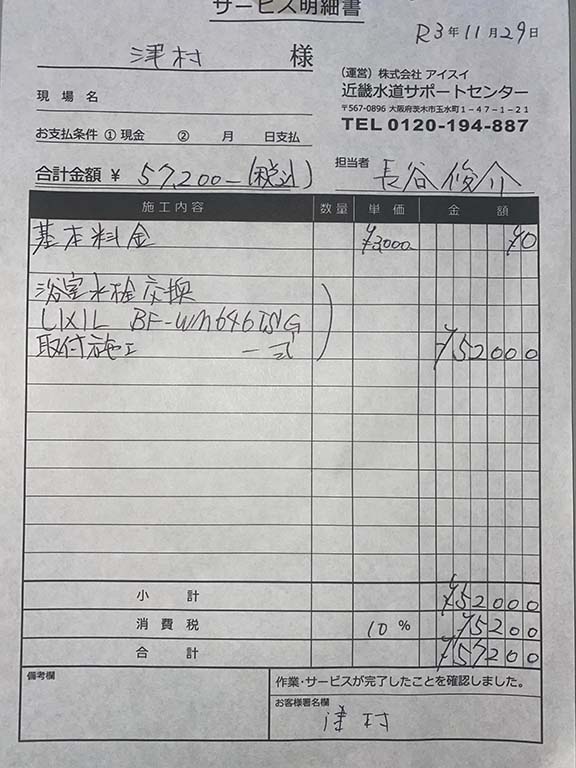 サービス明細書
R3年11月29日
津村 様
(運営)株式会社 アイスイ
近畿水道サポートセンター
〒567-0896 大阪府茨木市玉水町1-47-1-21
TEL 0120-194-887
現場名
お支払条件 ① 現金 ② 月 日支払
合計金額 ¥ 57,200-(税込)
担当者 長谷 俊介
施工内容 数量 単価 金額
基本料金 ¥3,000 ¥0
浴室水栓交換
LIXIL BF-WM646TSG
取付施工 一式 ¥52000
小計 ¥52000
消費税 10% ¥5200
合計 ¥57200
備考欄
作業・サービスが完了したことを確認しました。
お客様署名欄
津村